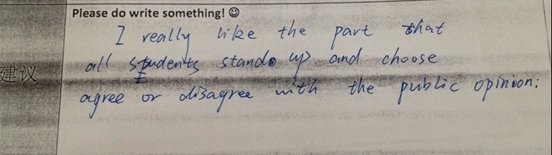 Please do write something! ☺
I really like the part that
all students stands up and choose
建议
agree or disagree with the public opinion.